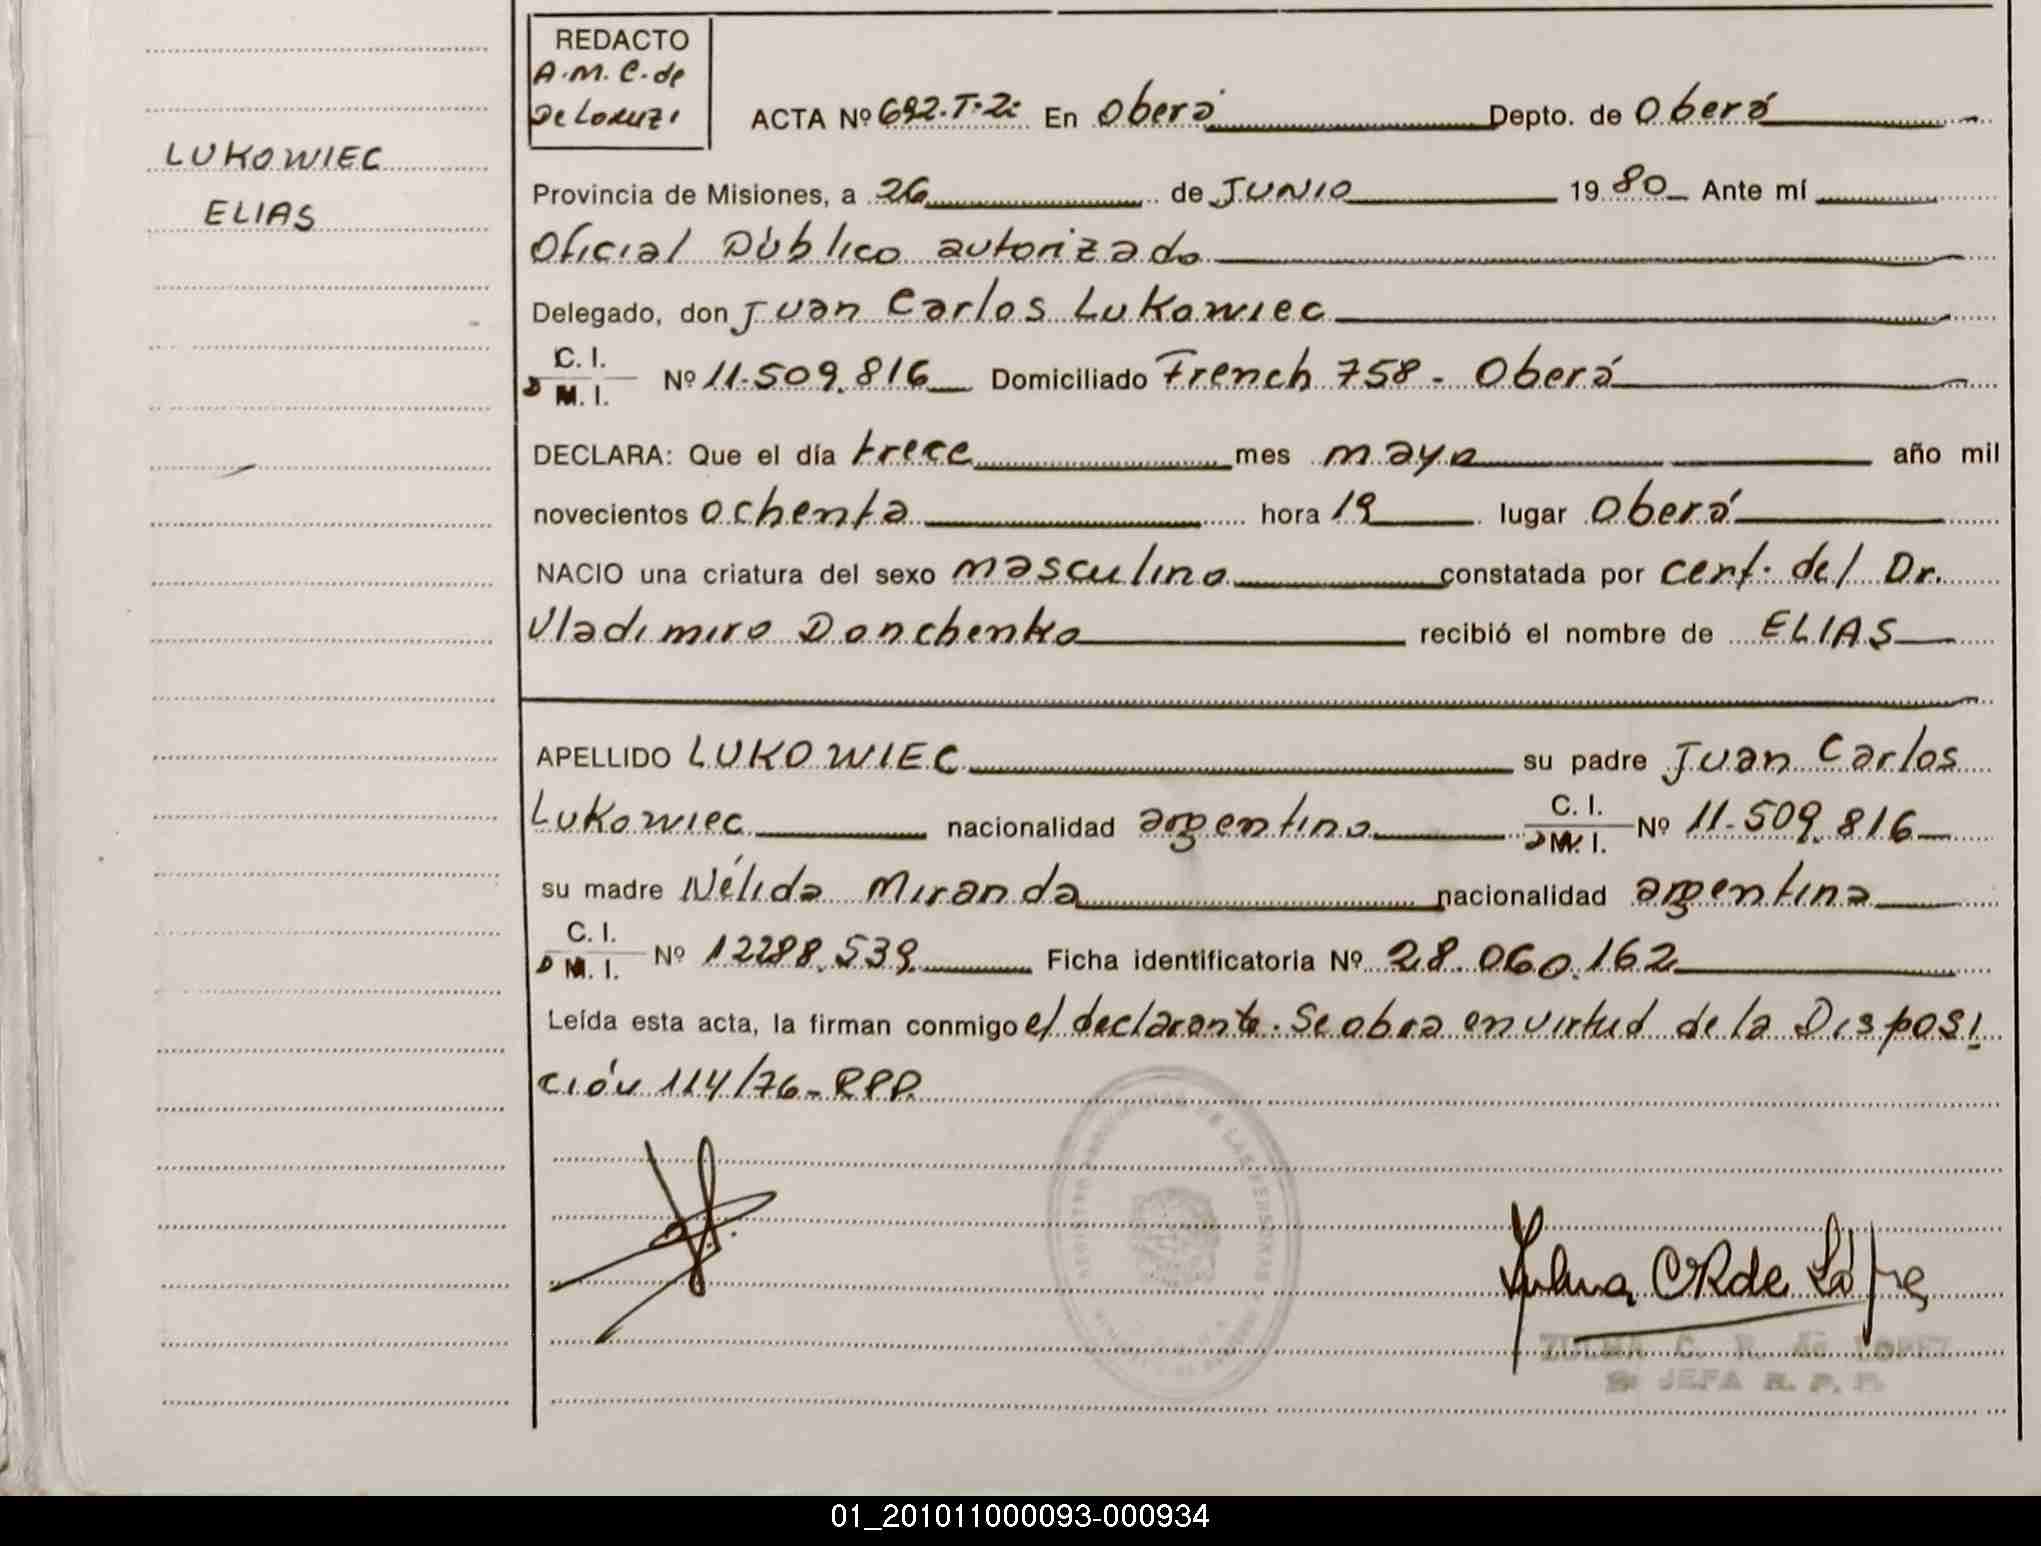 REDACTO
A.M.C. de
De Lorenzi
LUKOWIEC
ELIAS
ACTA Nº 692.T.2: En Oberá Depto. de Oberá
Provincia de Misiones, a 26 de JUNIO 1980 Ante mí
Oficial Público autorizado
Delegado, don Juan Carlos Lukowiec
C. I.
D M. I. Nº 11.509.816 Domiciliado French 758 - Oberá
DECLARA: Que el día trece mes mayo año mil
novecientos ochenta hora 19 lugar Oberá
NACIO una criatura del sexo masculino constatada por cert. del Dr.
Vladimiro Donchenko recibió el nombre de ELIAS
APELLIDO LUKOWIEC su padre Juan Carlos
Lukowiec nacionalidad argentino C. I. D M. I. Nº 11.509.816
su madre Nélida Miranda nacionalidad argentina
C. I.
D M. I. Nº 12288.539 Ficha identificatoria Nº 28.060.162
Leída esta acta, la firman conmigo el declarante. Se obra en virtud de la Disposi
ción 114/76-RPP.
REGISTRO PROVINCIAL DE LAS PERSONAS
Zulma C R de López
ZULMA C. R. de LOPEZ
JEFA R. P. P.
01_201011000093-000934